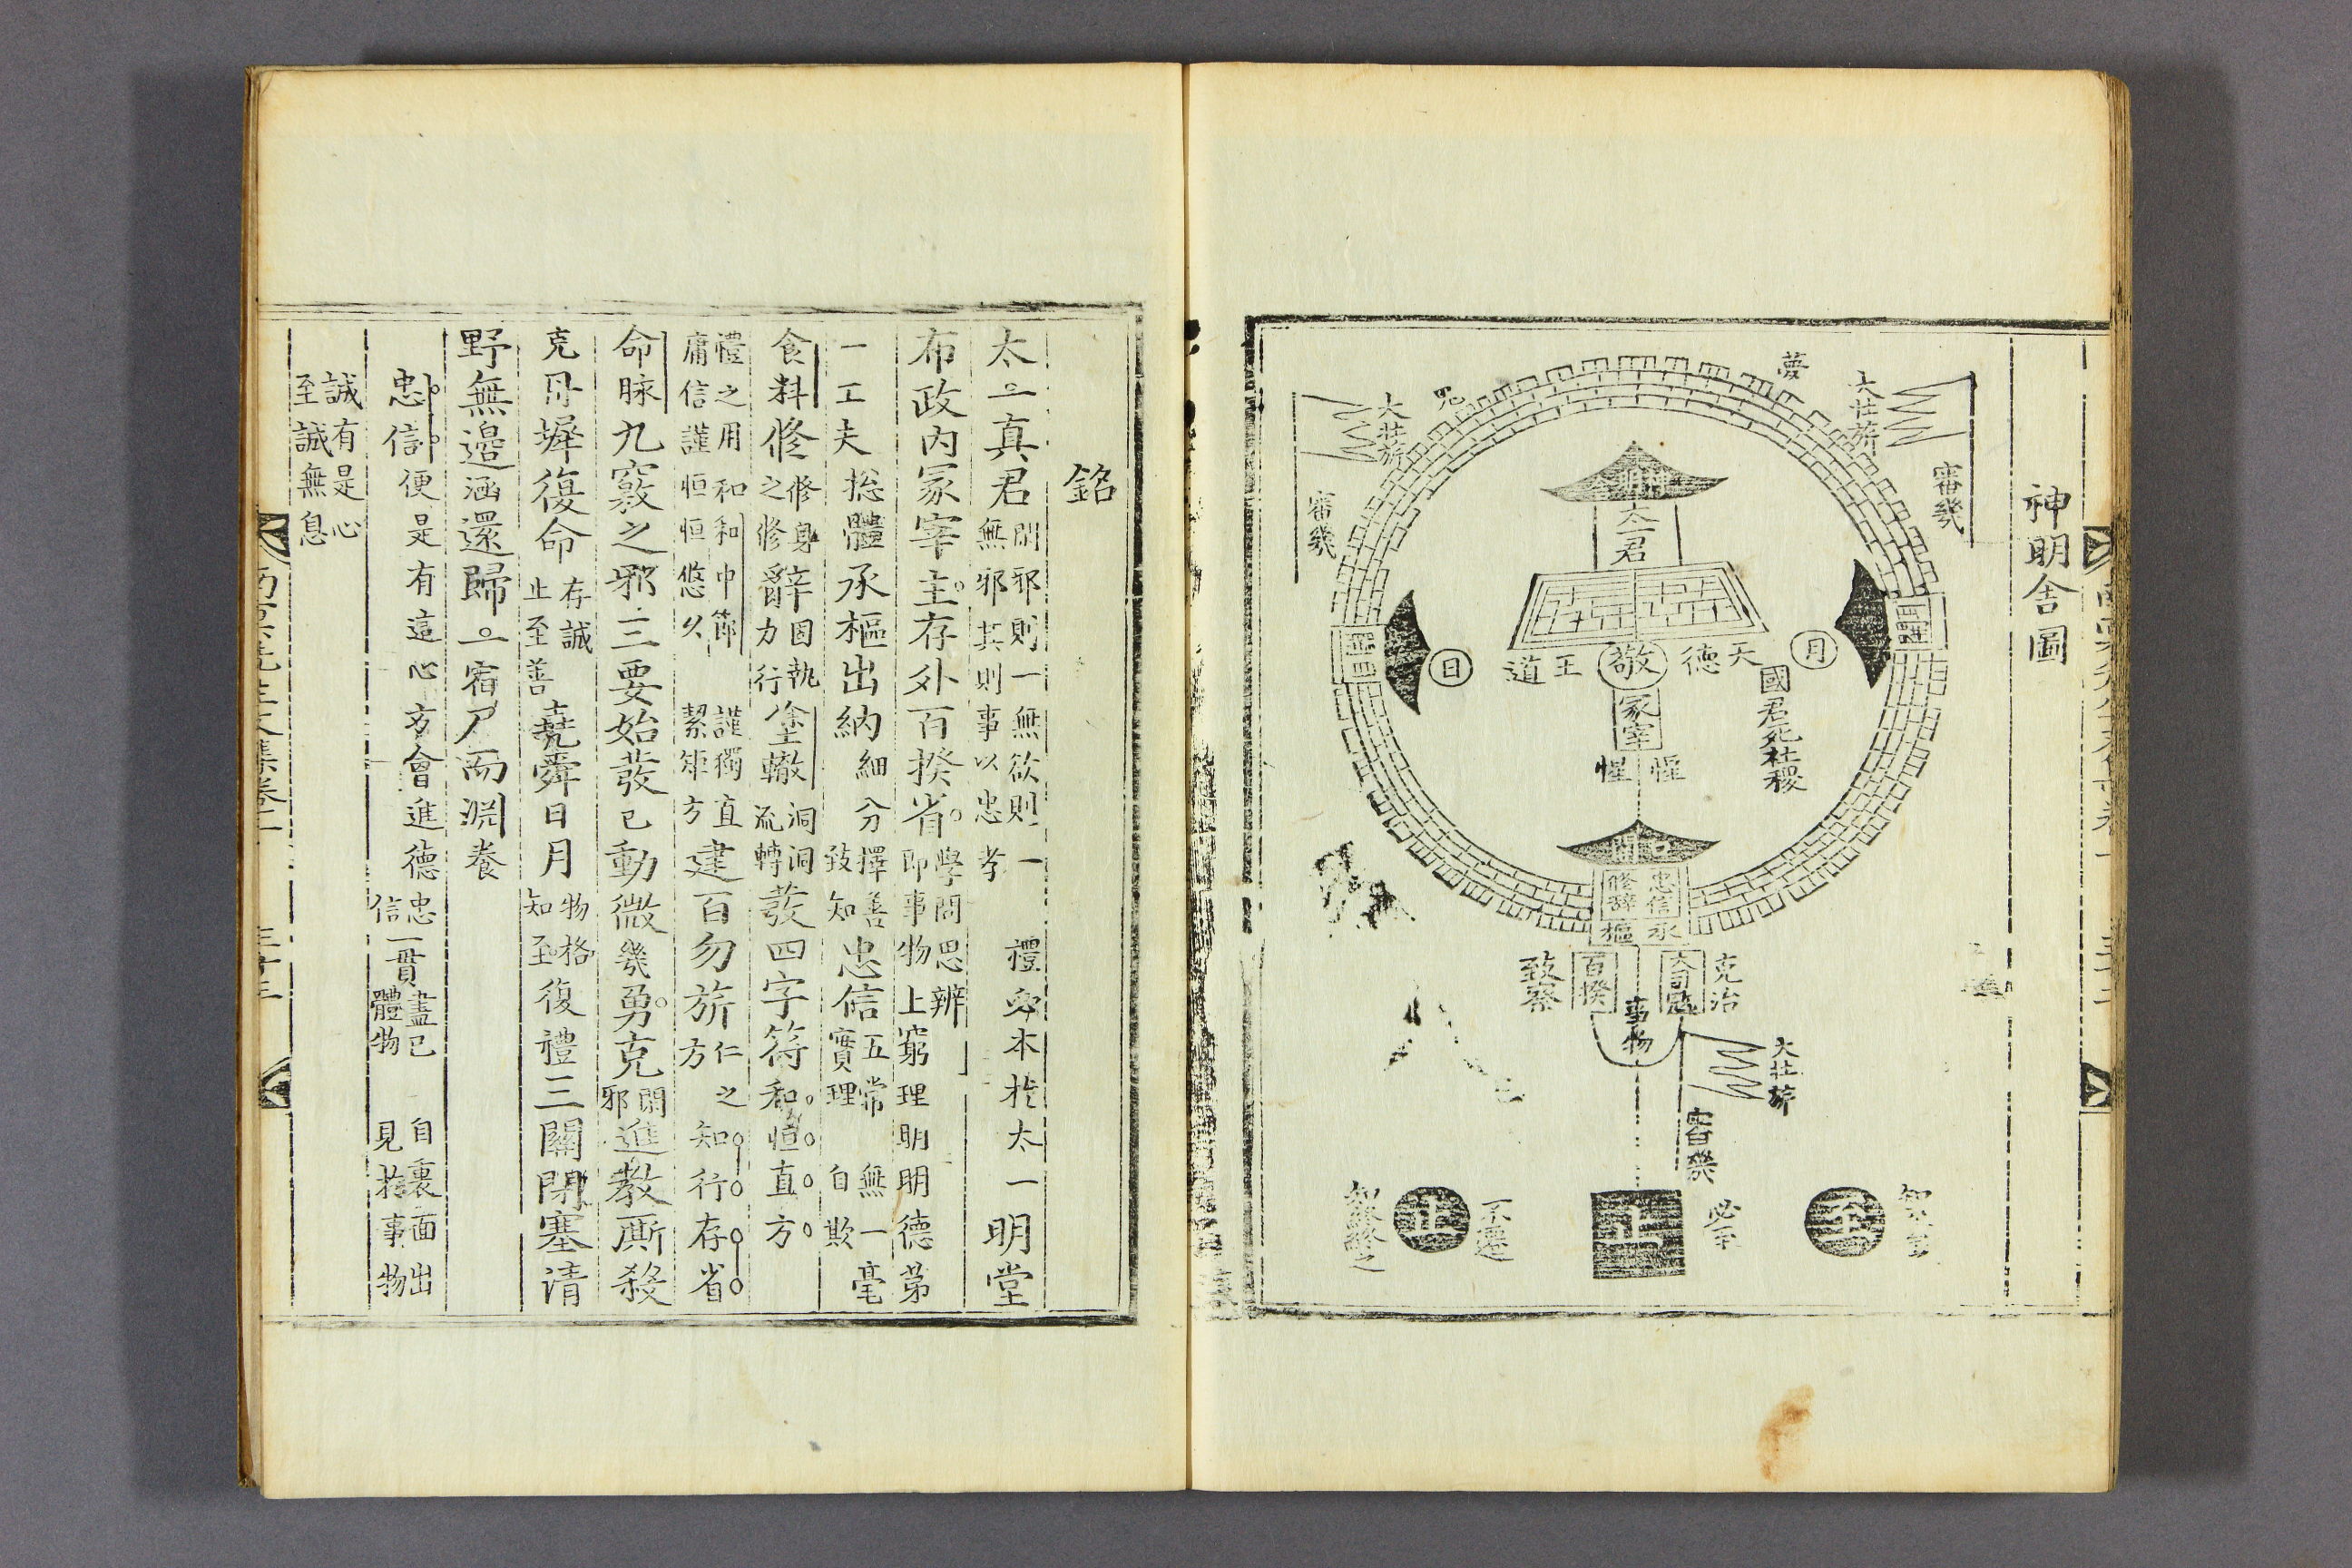 神明舍圖
大壯旂
審幾
夢
大壯旂
審幾
太一君
月
天德
敬
王道
日
國君死社稷
冢宰
惺惺
口關
忠信
修辭
承樞
克治
大司寇
百揆
致察
事物
大壯旂
審幾
至
必至
止
不遷
止
銘
太一真君
閑邪則一無欲則一
無邪其則事以忠孝
禮必本於太一
明堂
布政內冢宰主存外百揆省
學問思辨
即事物上窮理明明德第
一工夫
總體
承樞出納
細分
擇善
致知
忠信
五常
實理
無一毫
自欺
食料
修
修身
之修
辭
固執
力行
塗轍
洞洞
流轉
發四字符
和恒直方
禮之用和
和中節
庸信謹恒
恒悠久
謹獨
絜矩
直
方
建百勿旂
仁之
方
知行存省
命脉
九竅之邪三要始發
已
動微
幾
勇克
閑
邪
進教廝殺
克
丹墀復命
存誠
止至善
堯舜日月
物格
知至
復禮
三關閉塞清
野無邊
涵
還歸一宿尸而淵
養
忠信
便是有這心方會進德
忠
信
一貫
盡己
體物
自裏面出
見於事物
誠有是心
至誠無息